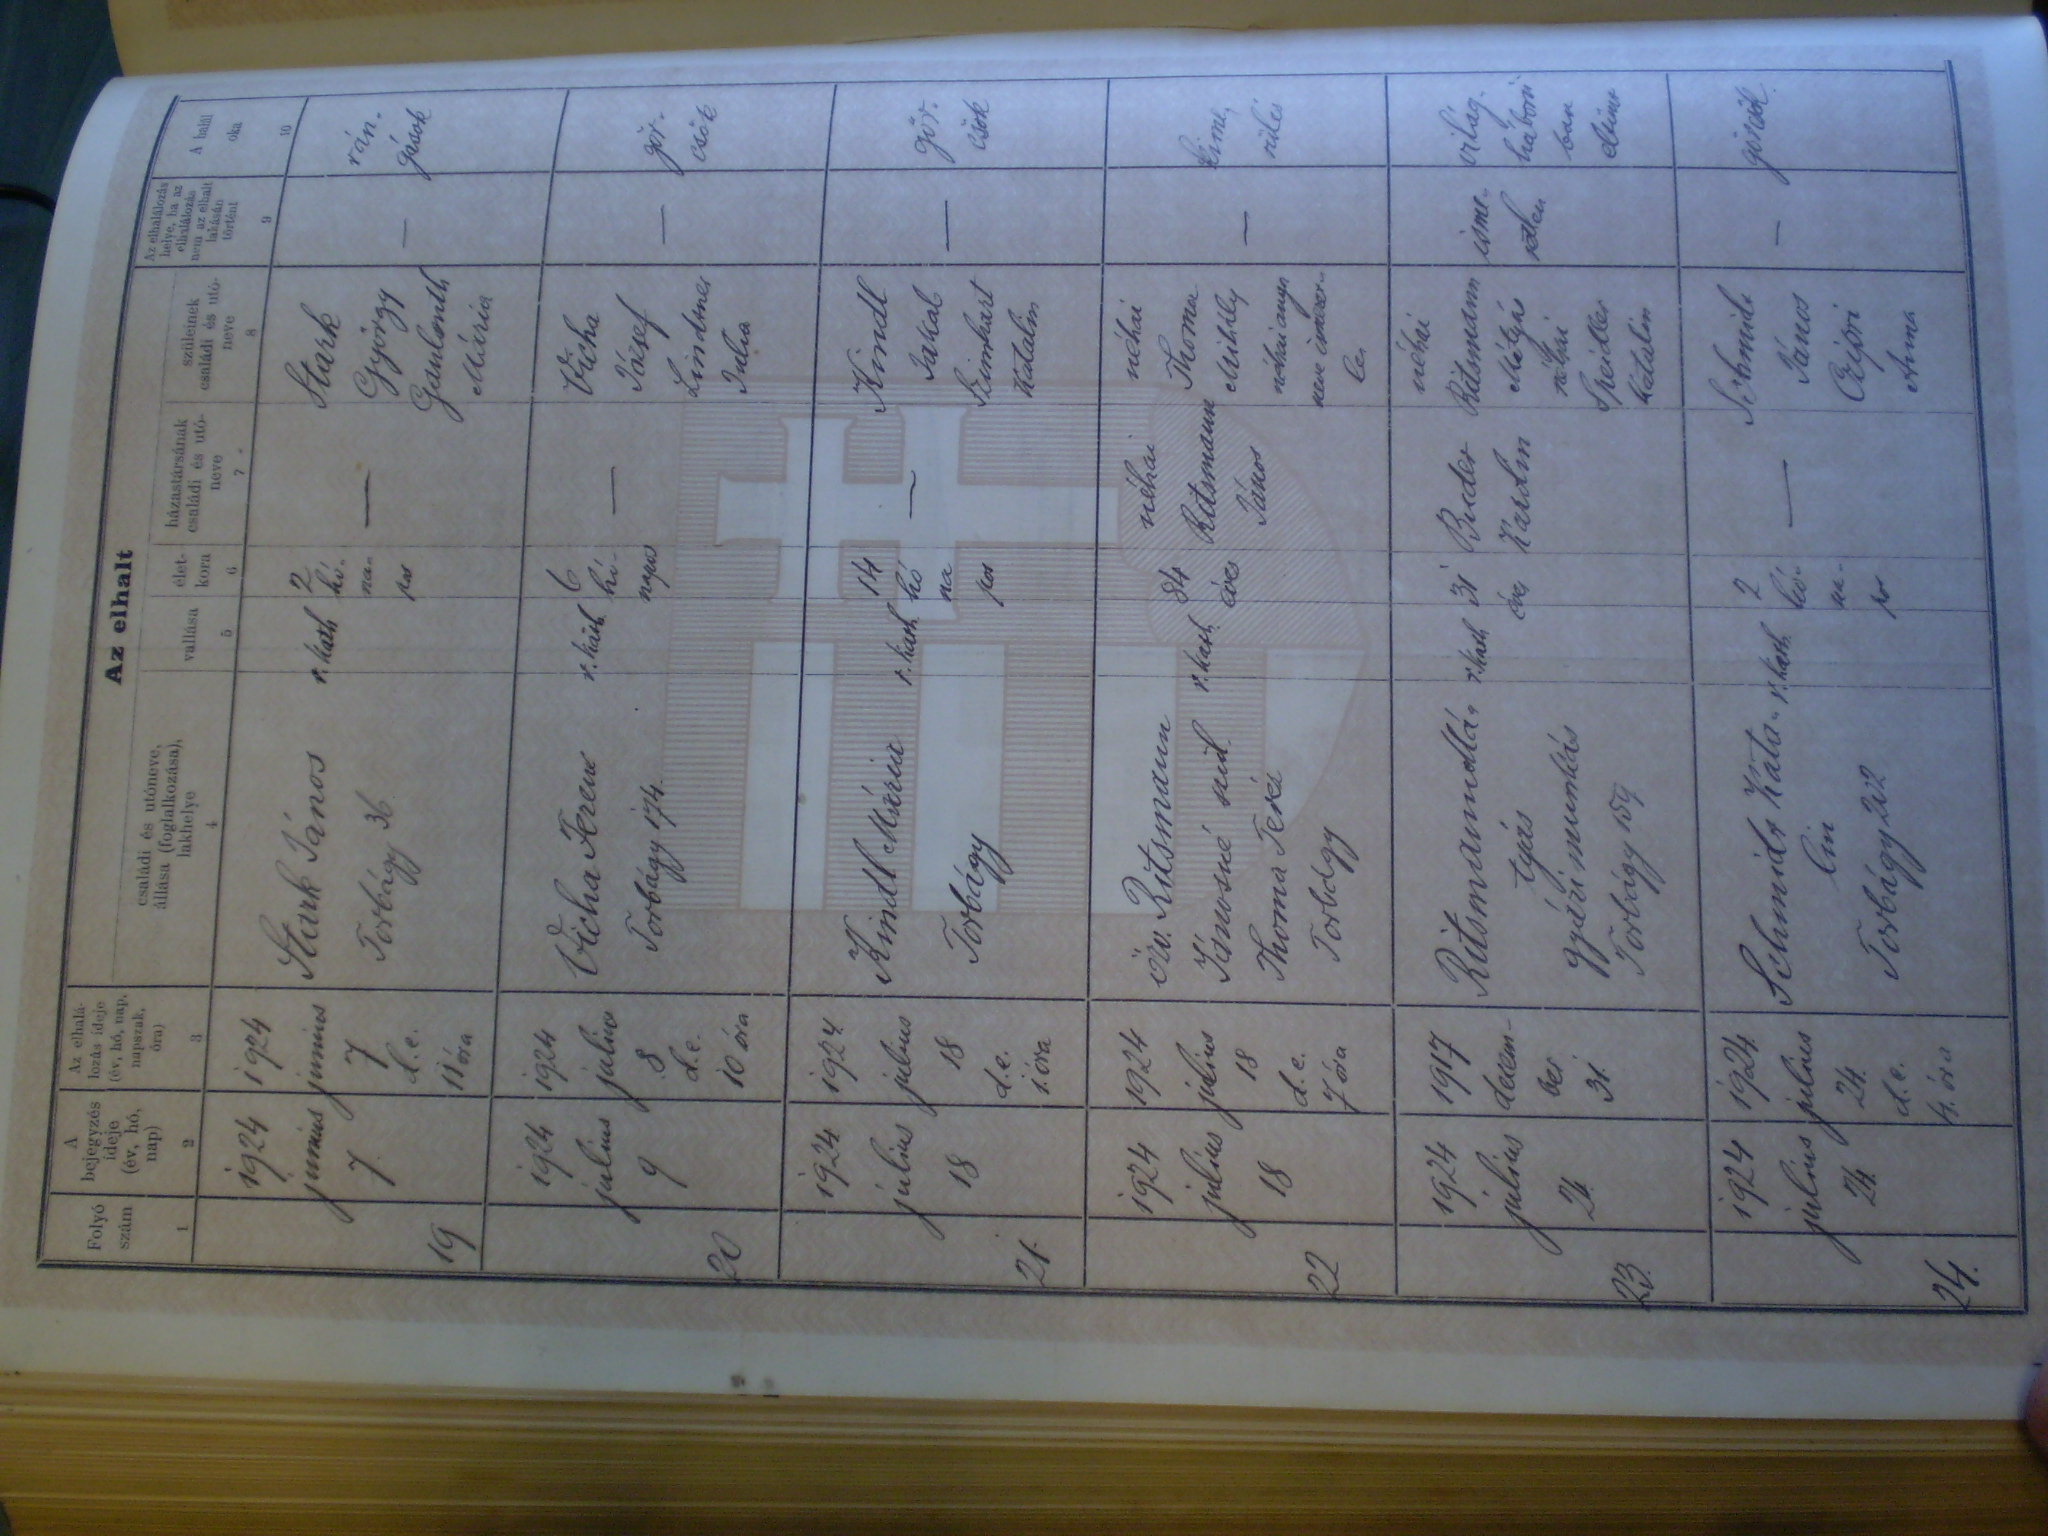 Az elhalt
Folyó
szám
A
bejegyzés
ideje
(év, hó,
nap)
Az elhalá-
lozás ideje
(év, hó, nap,
napszak,
óra)
családi és utóneve,
állása (foglalkozása),
lakhelye
vallása
élet-
kora
házastársának
családi és utó-
neve
szüleinek
családi és utó-
neve
Az elhalálozás
helye, ha az
elhalálozás
nem az elhalt
lakásán
történt
A halál
oka
1
2
3
4
5
6
7
8
9
10
19
1924
junius
7
1924
junius
7
d. e.
11 óra
Stark János
Torbágy 36
r. kath
2
hó-
na-
pos
—
Stark
György
Mária
—
rán-
gások
20
1924
július
9
1924
július
8
d. e.
10 óra
Vicha Ferenc
Torbágy 174.
r. kath
6
hó-
napos
—
Vicha
József
Lindtner
Julia
—
gör-
csök
21.
1924
július
18
1924
július
18
d. e.
1 óra
Kindl Mária
Torbágy
r. kath
14
hó
na
pos
—
Kindl
Jakab
Katalin
—
gör-
csök
22
1924
július
18
1924
július
18
d. e.
7 óra
öv. Ritsmann
Jánosné szül.
Thoma Teréz
Torbágy
r. kath.
84
éves
néhai
Ritsmann
János
néhai
Thoma
Mihály
néhai anyja
nem ismere-
—
kime-
rülés
23.
1924
július
24.
1917
decem-
ber
31.
Ritsmann Má-
tyás
gyári munkás
Torbágy 159
r. kath
31
éves
Karolin
néhai
Ritsmann
Mátyás
néhai
Speidler
Katalin
isme-
retlen
világ-
háború
ban
eltünt
24.
1924
július
24
1924
július
24.
d. e.
4. óra
Schmidt Kata-
lin
Torbágy 222
r. kath.
2
hó-
na-
pos
—
Schmidt
János
Czipri
Anna
—
görcsök.